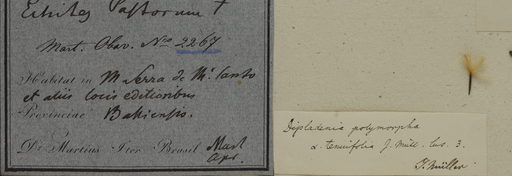 Echites Pastorum †
Mart. Obsv. Nro 2267
Habitat in M. Serra de M. Santo
et aliis locis editioribus
Provinciae Bahiensis.
Dr. Martius Iter Brasil. Mart
Apr.
Dipladenia polymorpha
α. tenuifolia J. Müll. lus. 3.
J. Müller